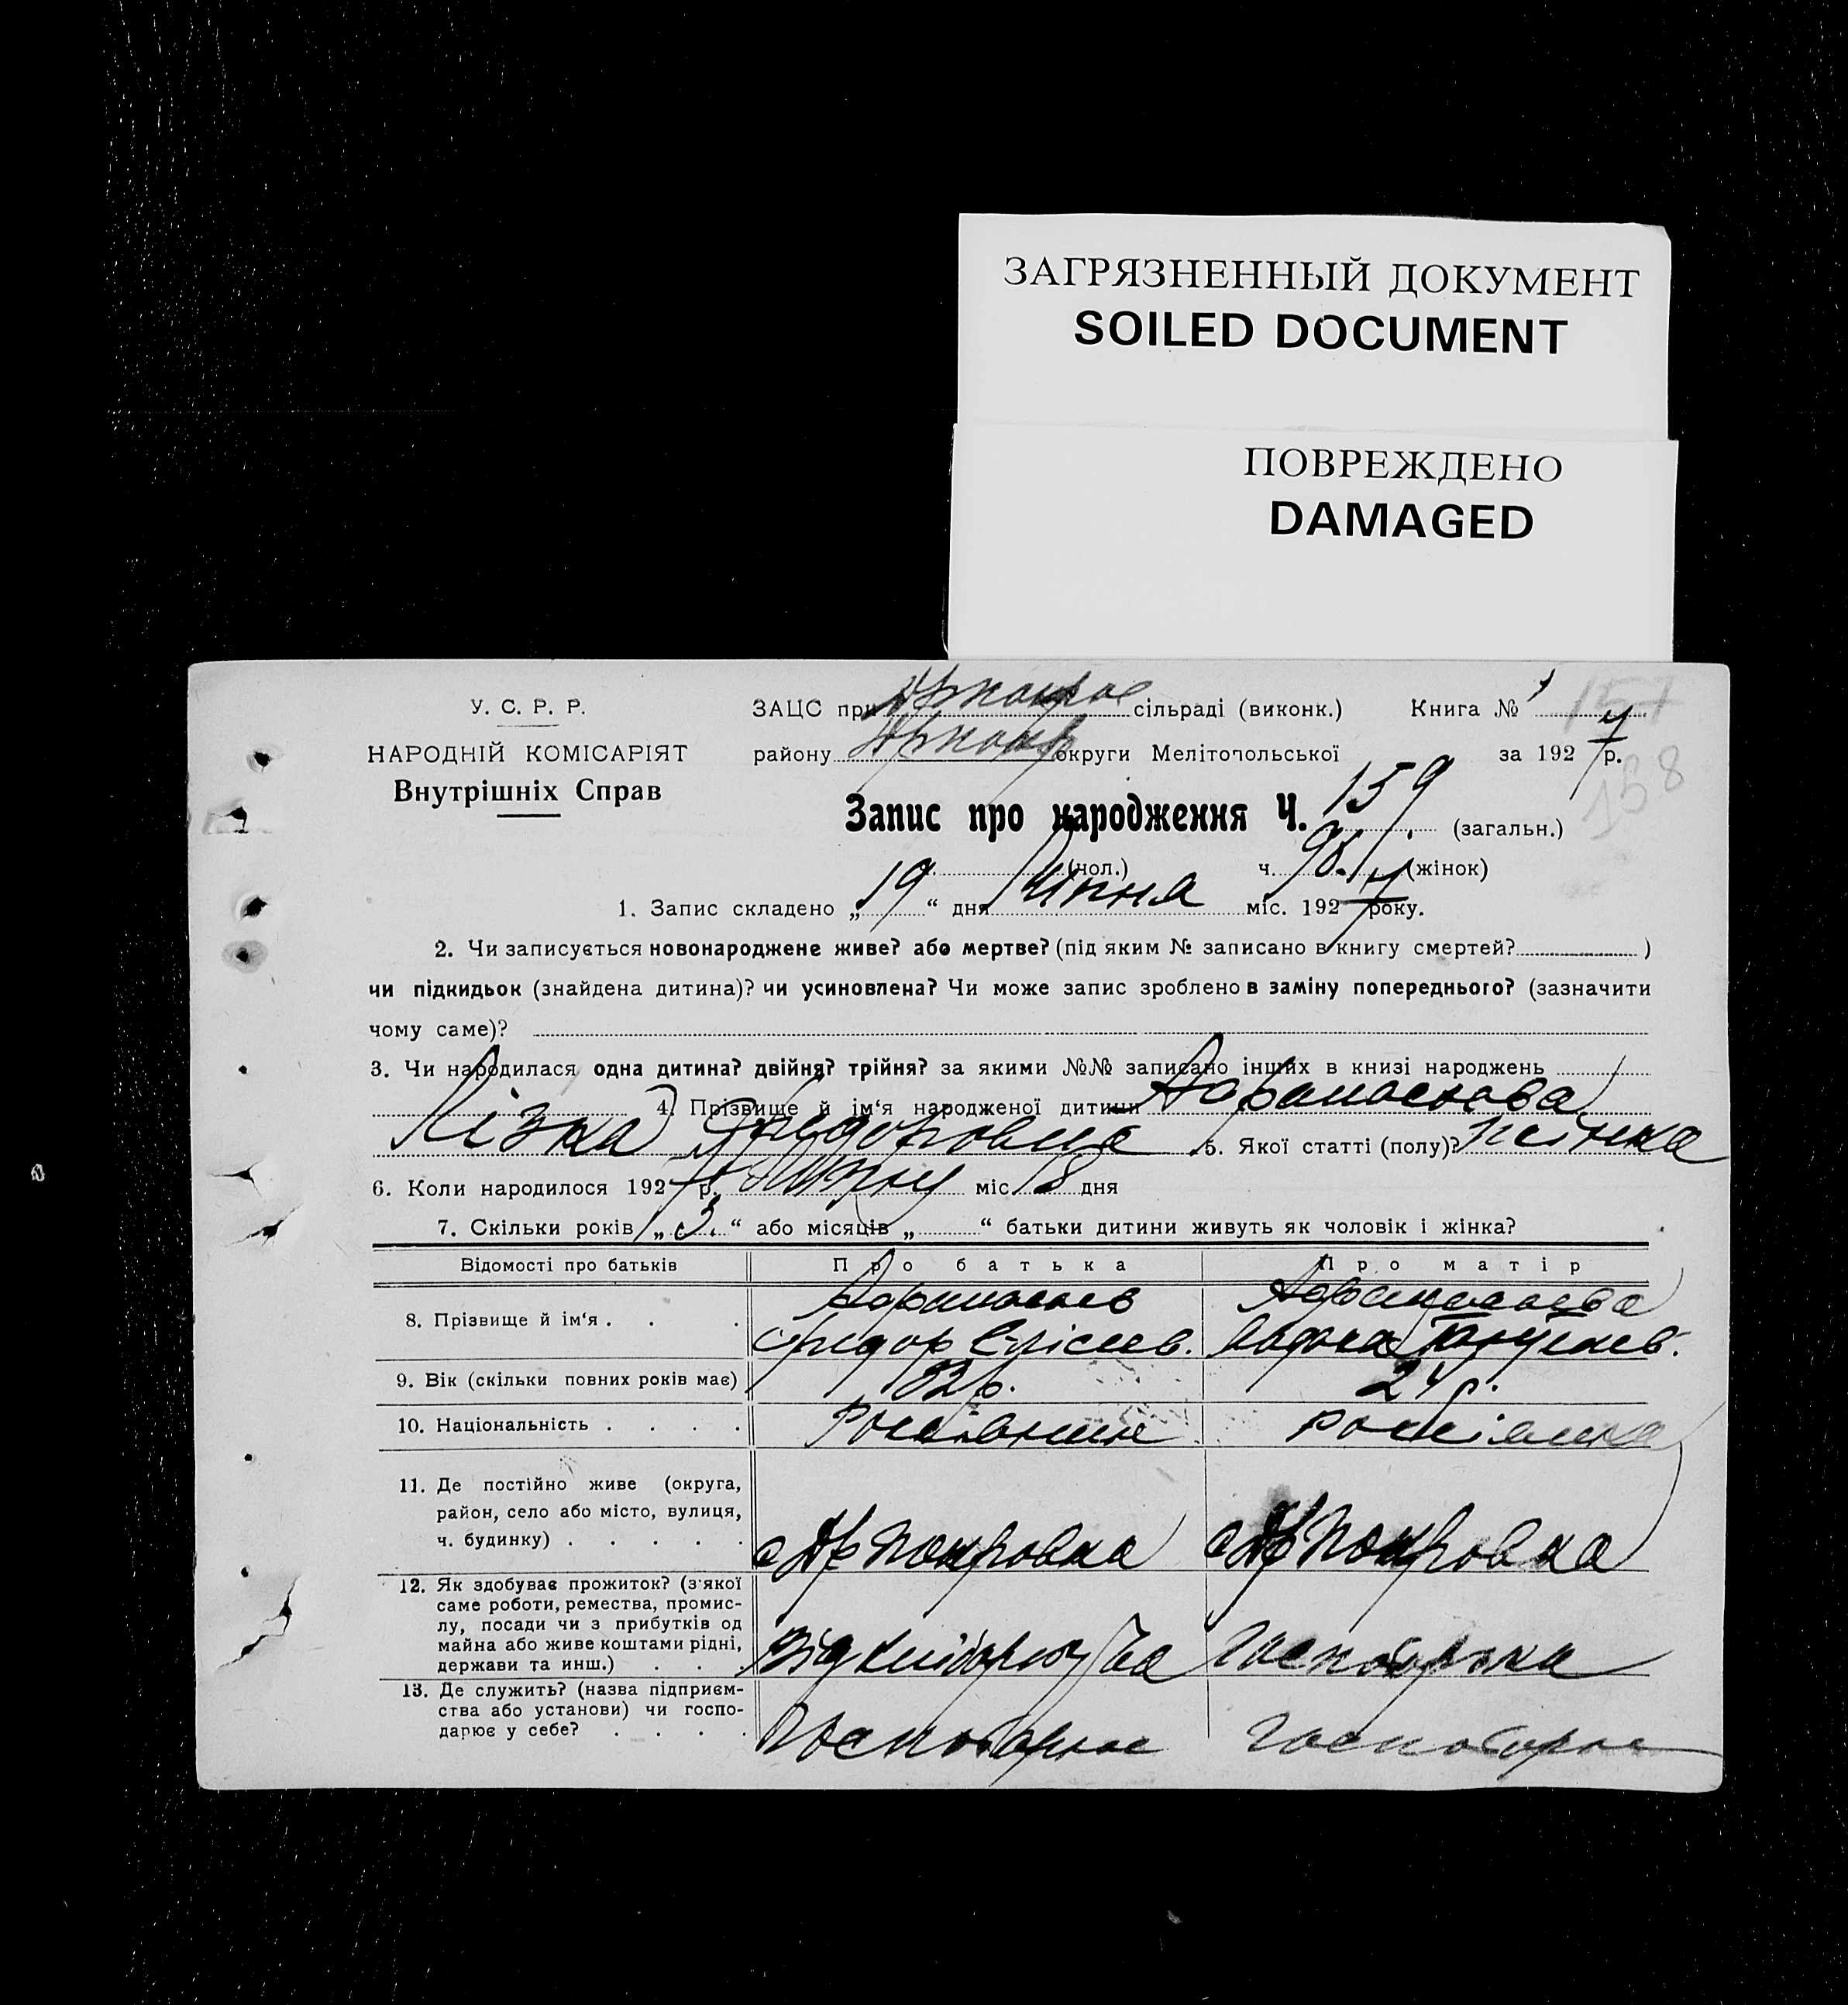 ЗАГРЯЗНЕННЫЙ ДОКУМЕНТ
SOILED DOCUMENT
ПОВРЕЖДЕНО
DAMAGED
У. С. Р. Р.
НАРОДНІЙ КОМІСАРІЯТ
Внутрішніх Справ
ЗАЦС при сільраді (виконк.) Книга № 1 157
району округи Мелітопольської за 1927 р.
158
Запис про народження Ч. 159 (загальн.)
(чол.) ч. 98. (жінок)
1. Запис складено „19“ дня Липня міс. 1927 року.
2. Чи записується новонароджене живе? або мертве? (під яким № записано в книгу смертей? )
чи підкидьок (знайдена дитина)? чи усиновлена? Чи може запис зроблено в заміну попереднього? (зазначити
чому саме)?
3. Чи народилася одна дитина? двійня? трійня? за якими №№ записано інших в книзі народжень
4. Прізвище й ім‘я народженої дитини
Федоровна 5. Якої статті (полу)? жінка
6. Коли народилося 1927 р. міс 18 дня
7. Скільки років „3.“ або місяців „ “ батьки дитини живуть як чоловік і жінка?
Відомості про батьків Про батька Про матір
8. Прізвище й ім‘я . . . Федор Єлісеев.
9. Вік (скільки повних років має) 32 р. 24 р.
10. Національність . . . . Росіянин росіянка
11. Де постійно живе (округа,
район, село або місто, вулиця,
ч. будинку) . . . . . Покровка Покровка
12. Як здобуває прожиток? (з'якої
саме роботи, ремества, промис-
лу, посади чи з прибутків од
майна або живе коштами рідні,
держави та инш.) . . .
13. Де служить? (назва підприєм-
ства або установи) чи госпо-
дарює у себе? . . . .